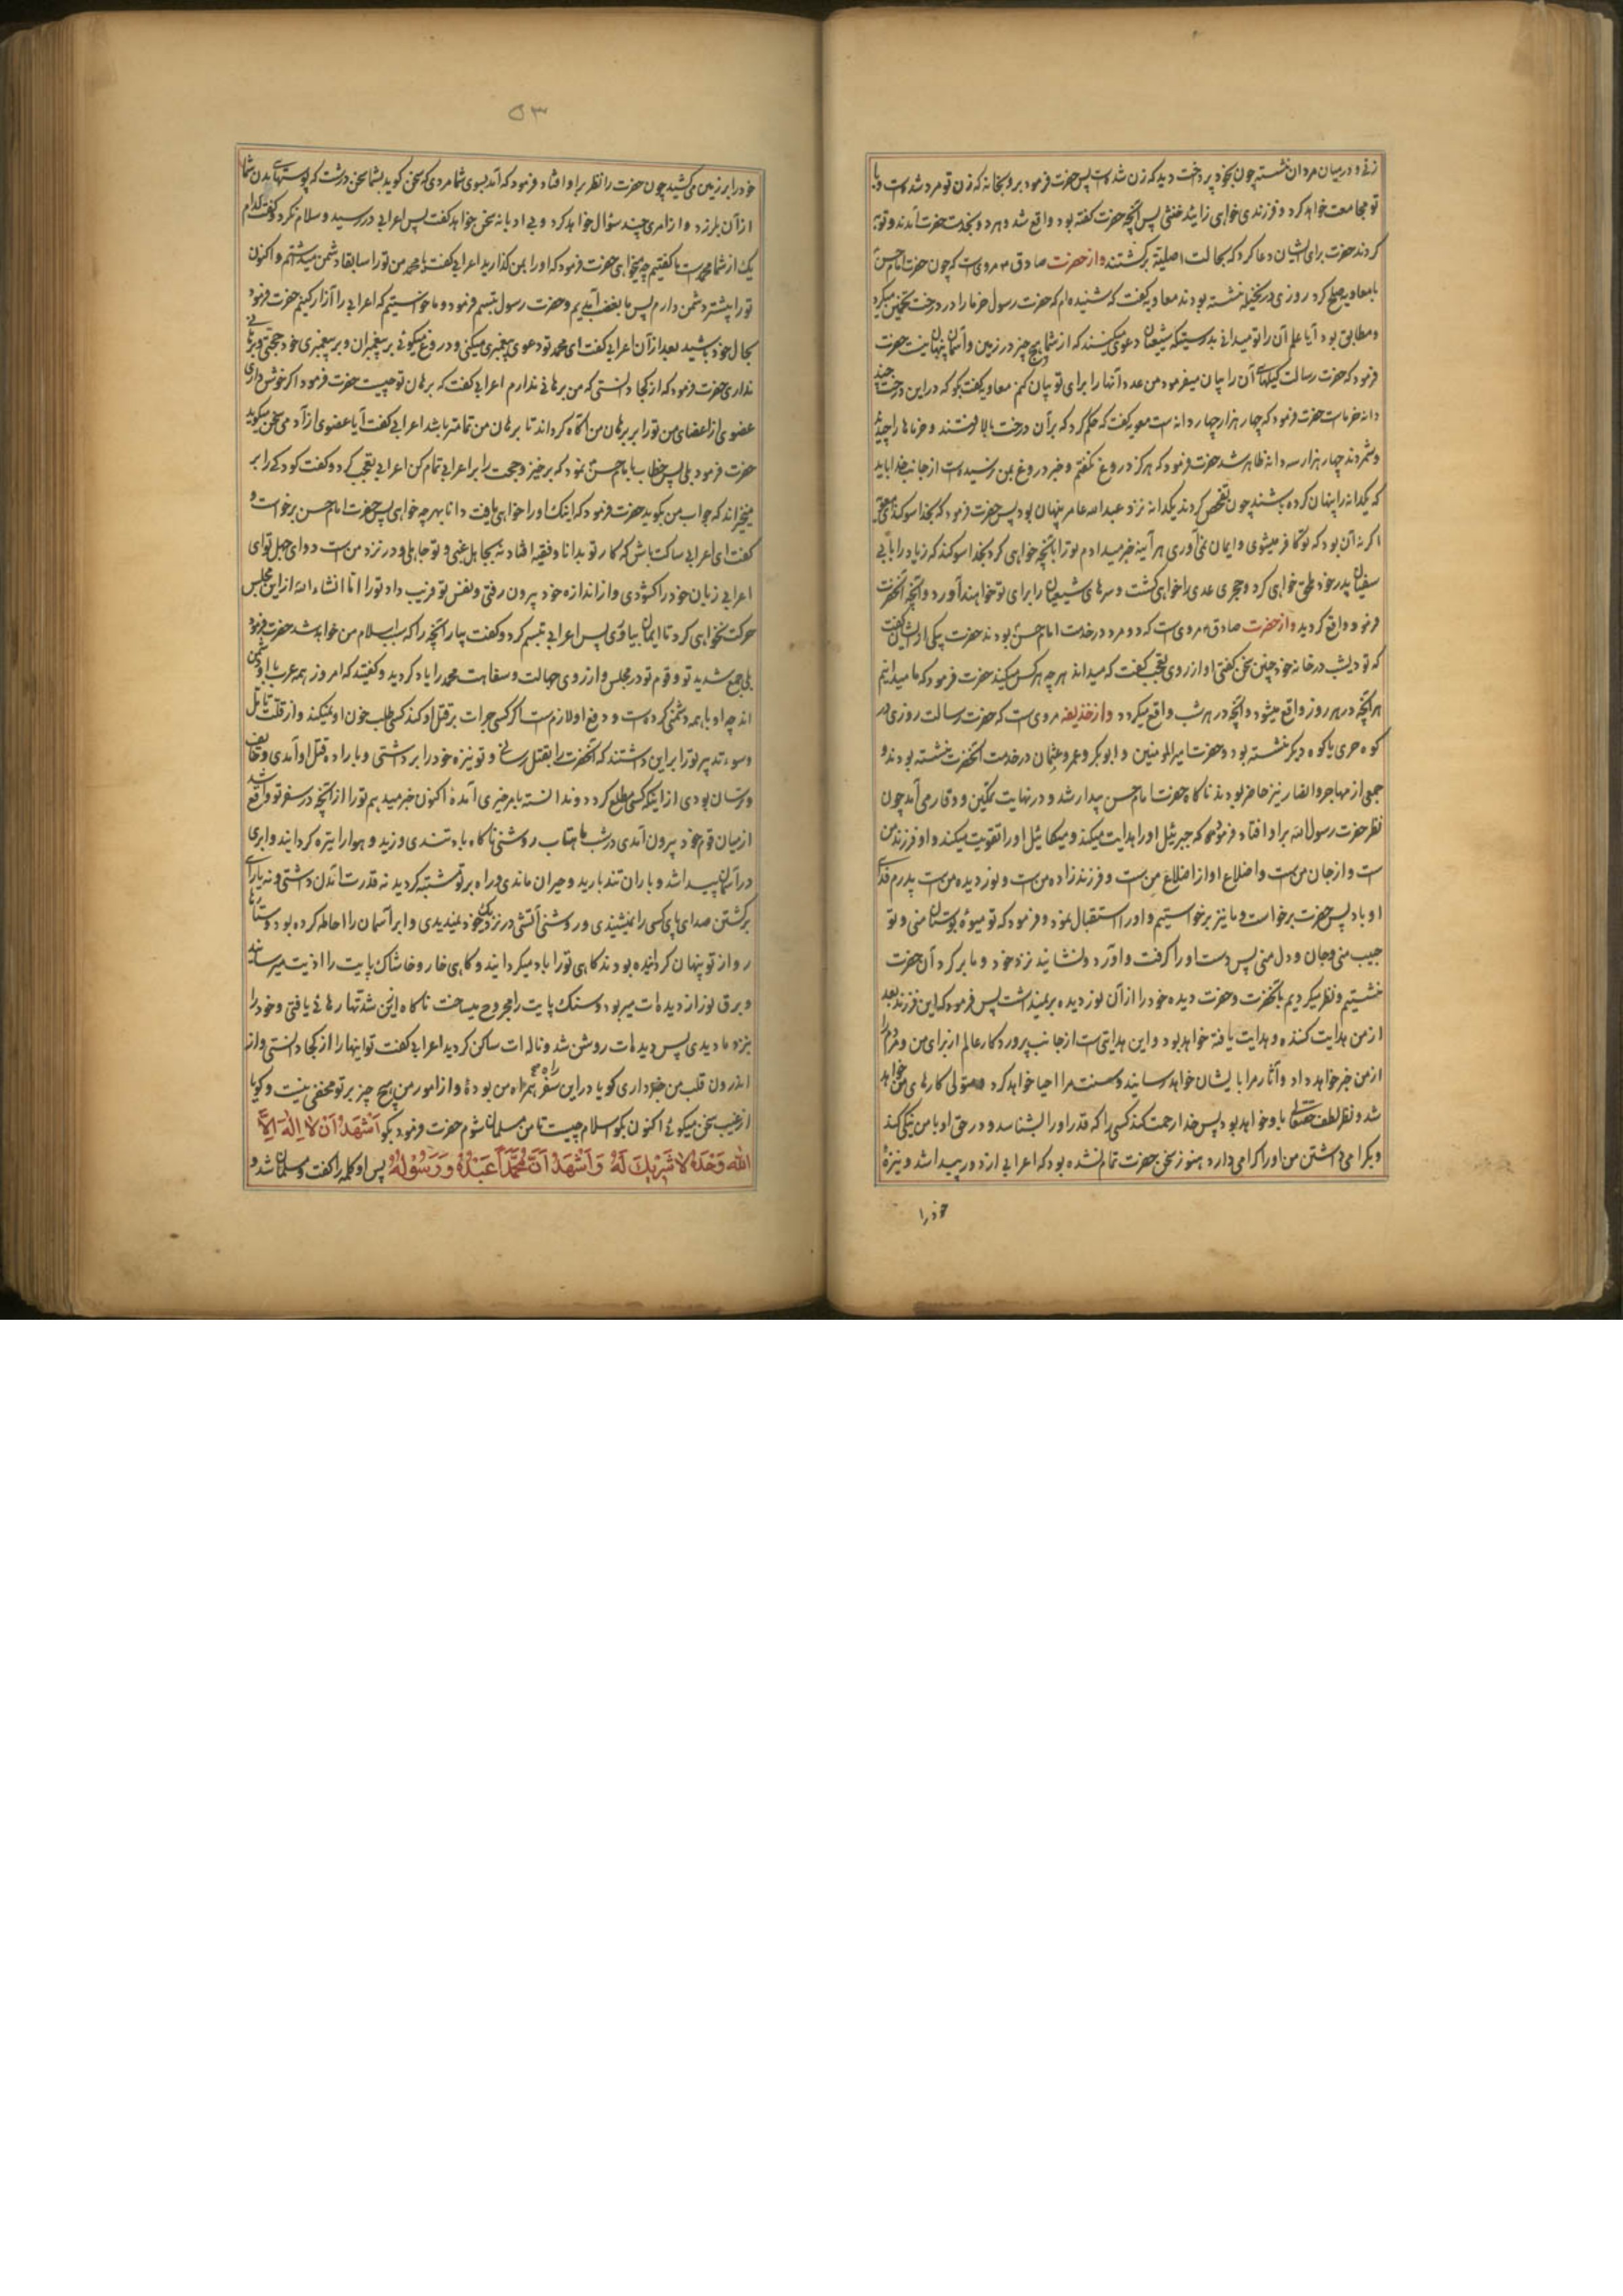 زنی و در میان مردان نشسته چون بخود پرداخت دید که زن شده است پس حضرت فرمود برو بخانه که زن تو مرد شده است و با
تو مجامعت خواهد کرد و فرزندی خواهی زایید خنثی پس آنچه حضرت گفته بود واقع شد و هر دو بخدمت حضرت آمدند و توبه
کردند حضرت برای ایشان دعا کرد که بحالت اصلیه برگشتند و از حضرت صادق ع مرویست که چون حضرت امام حسن
با معاویه صلح کرد روزی در نخیله نشسته بودند معاویه گفت که شنیده‌ام که حضرت رسول خرما را در درخت تخمین میکرد
و مطابق بود آیا علم آن را تو میدانی بدرستیکه شیعیان دعوی میکنند که از شما هیچ چیز در زمین و آسمان پنهان نیست حضرت
فرمود که حضرت رسالت کیلهای آن را بیان میفرمود من عدد آنها را برای تو بیان کنم معاویه گفت بگو که در این درخت چند
دانه خرماست حضرت فرمود که چهار هزار و چهار دانه است معویه گفت که حکم کرد که بر آن درخت بالا رفتند و خرماها را چیدند
و شمردند چهار هزار و سه دانه ظاهر شد حضرت فرمود که هرگز دروغ نگفتم و خبر دروغ بمن نرسیده است از جانب خدا باید
که یکدانه را پنهان کرده باشند چون تفحص کردند یکدانه نزد عبدالله عامر پنهان بود پس حضرت فرمود که بخدا سوگند ای معویه
اگر نه آن بود که تو کافر میشوی و ایمان نمی‌آوری هر آینه خبر میدادم تو را بآنچه خواهی کرد بخدا سوگند که زیاد را بابی
سفیان پدر خود ملحق خواهی کرد و حجر بن عدی را خواهی کشت و سرهای شیعیان را برای تو خواهند آورد و آنچه آنحضرت
فرمود واقع گردید و از حضرت صادق ع مرویست که دو مرد در خدمت امام حسن بودند حضرت بیکی از ایشان گفت
که تو دیشب در خانه خود چنین سخن گفتی او از روی تعجب گفت که میداند هر چه هر کس میکند حضرت فرمود که ما میدانیم
هر آنچه در هر روز واقع میشود و آنچه در هر شب واقع میگردد و از حذیفه مرویست که حضرت رسالت روزی در
کوه حری یا کوه دیگر نشسته بود و حضرت امیرالمومنین و ابوبکر و عمر و عثمان در خدمت آنحضرت نشسته بودند و
جمعی از مهاجر و انصار نیز حاضر بودند ناگاه حضرت امام حسن پیدا شد و در نهایت تمکین و وقار می‌آمد چون
نظر حضرت رسول الله بر او افتاد فرمود که جبرئیل او را هدایت میکند و میکائیل او را تقویت میکند و او فرزند من
است و از جان من است و اضلاع او از اضلاع من است و فرزندزاده من است و نور دیده من است پدرم فدای
او باد پس حضرت برخواست و ما نیز برخواستیم و او را استقبال نمود و فرمود که تو میوهٔ بوستان منی و تو
حبیب منی و جان و دل منی پس دست او را گرفت و آورد و نشانید نزد خود و ما بر گرد آن حضرت
نشستیم و نظر میکردیم بآنحضرت و حضرت دیده خود را از آن نور دیده برنمیداشت پس فرمود که این فرزند بعد
از من هدایت کننده و هدایت یافته خواهد بود و این هدایتی است از جانب پروردگار عالم از برای من و مردم را
از من خبر خواهد داد و آثار مرا بایشان خواهد رسانید و سنت مرا احیا خواهد کرد و متولی کارهای من خواهد
شد و نظر لطف حقتعالی با او خواهد بود پس خدا رحمت کند کسی را که قدر او را بشناسد و در حق او با من نیکی کند
و بگرامی داشتن من او را گرامی دارد هنوز سخن حضرت تمام نشده بود که اعرابی از دور پیدا شد و نیزهٔ
خود را
۵۳
خود را بر زمین می‌کشید چون حضرت را نظر بر او افتاد فرمود که آمد بسوی شما مردی که سخن گوید بشما سخن درشت که پوستهای بدن شما
از آن بلرزد و از امری چند سؤال خواهد کرد و بی ادبانه سخن خواهد گفت پس اعرابی در رسید و سلام نکرد و گفت کدام
یک از شما محمد است ما گفتیم چه میخواهی حضرت فرمود که او را بمن گذارید اعرابی گفت یا محمد من تو را سابقا دشمن میداشتم و اکنون
تو را بیشتر دشمن دارم پس ما بغضب آمدیم و حضرت رسول تبسم فرمود و ما خواستیم که اعرابی را آزار کنیم حضرت فرمود
بحال خود باشید بعد از آن اعرابی گفت ای محمد تو دعوی پیغمبری میکنی و دروغ میگوئی بر پیغمبران و بر پیغمبری خود حجتی و برهانی
نداری حضرت فرمود که از کجا دانستی که من برهانی ندارم اعرابی گفت که برهان تو چیست حضرت فرمود اگر خوش داری
عضوی از اعضای من تو را بر برهان من آگاه گرداند تا برهان من تمامتر باشد اعرابی گفت آیا عضوی از آدمی سخن میگوید
حضرت فرمود بلی پس خطاب بامام حسن نمود که برخیز و حجت را بر اعرابی تمام کن اعرابی تعجب کرد و گفت کودکی را بر
میخیزاند که جواب من بگوید حضرت فرمود که اینک او را خواهی یافت دانا بهر چه خواهی پس حضرت امام حسن برخواست و
گفت ای اعرابی ساکت باش که کار تو بدانا و فقیه افتاد نه بجاهل غبی و تو جاهلی و در نزد من است دوای جهل تو ای
اعرابی زبان خود را گشودی و از اندازه خود بیرون رفتی و نفس تو فریب داد تو را اما انشاء الله از این مجلس
حرکت نخواهی کرد تا ایمان بیاوری پس اعرابی تبسم کرد و گفت بیار آنچه را که سبب اسلام من خواهد شد حضرت فرمود
بلی جمع شدید تو و قوم تو در مجلس و از روی جهالت و سفاهت محمد را یاد کردید و گفتید که امروز همه عرب با او دشمن
اند چه او با همه دشمنی کرده است و دفع او لازم است اگر کسی جرات بر قتل او کند کسی طلب خون او نمیکند و از قلت تامل
و سوء تدبیر تو را بر این داشتند که آنحضرت را بقتل رسانی و تو نیزه خود را برداشتی و باراده قتل او آمدی و خایف
و ترسان بودی از اینکه کسی مطلع گردد و ندانسته بامر خیری آمدهٔ اکنون خبر میدهم تو را از آنچه در سفر تو واقع شد
از میان قوم خود بیرون آمدی در شب ماهتاب روشنی ناگاه باد تندی وزید و هوا را تیره گردانید و ابری
در آسمان پیدا شد و باران تند بارید و حیران ماندی و راه بر تو مشتبه گردید نه قدرت آمدن داشتی و نه یارای
برگشتن صدای پای کسی را نمیشنیدی و روشنی آتشی در نزدیک خود نمیدیدی و ابر آسمان را احاطه کرده بود و ستارها
را از تو پنهان گردانیده بودند گاهی تو را باد میگردانید و گاهی خار و خاشاک پایت را اذیت میرسانید
و برق نور از دیده‌ات میربود و سنگ پایت را مجروح میساخت ناگاه از این شدتها رهائی یافتی و خود را
بنزد ما دیدی پس دیده‌ات روشن شد و ناله‌ات ساکن گردید اعرابی گفت تو اینها را از کجا دانستی و از
اندرون قلب من خبر داری گویا در این سفر همراه من بودهٔ و از امور من هیچ چیز بر تو مخفی نیست و گویا
از غیب سخن میگوئی اکنون بگو اسلام چیست تا من مسلمان شوم حضرت فرمود بگو اَشْهَدُ اَنْ لا اِلٰهَ اِلَّا
اللّه وَحْدَهُ لا شَرِیكَ لَهُ وَ اَشْهَدُ اَنَّ مُحَمَّداً عَبْدُهُ وَ رَسُولُهُ پس او کلمه را گفت و مسلمان شد و